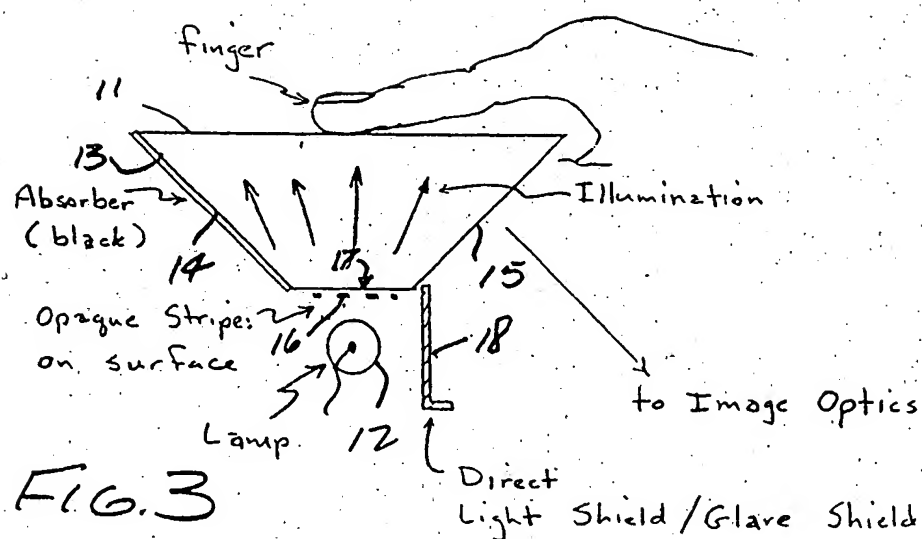 finger
11
13
Absorber
(black)
14
Illumination
17
15
Opaque Stripes
on surface
16
18
Lamp
12
to Image Optics
Direct
Light Shield / Glare Shield
FIG. 3